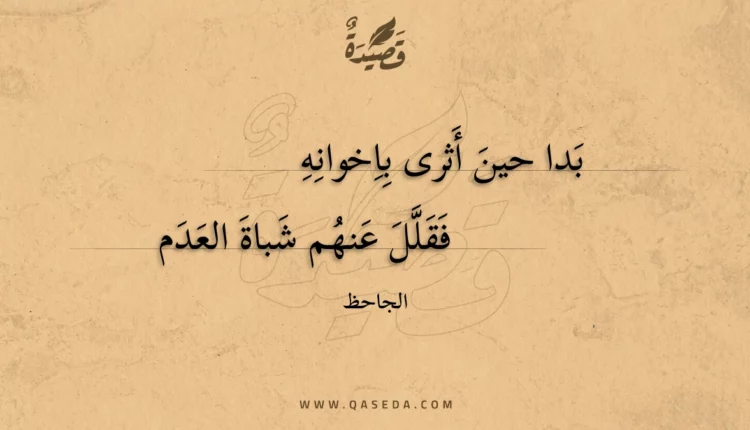 قَصِيدَةٌ
بَدا حينَ أَثرى بِإِخوانِهِ
فَقَلَّلَ عَنهُم شَباةَ العَدَم
الجاحظ
WWW.QASEDA.COM